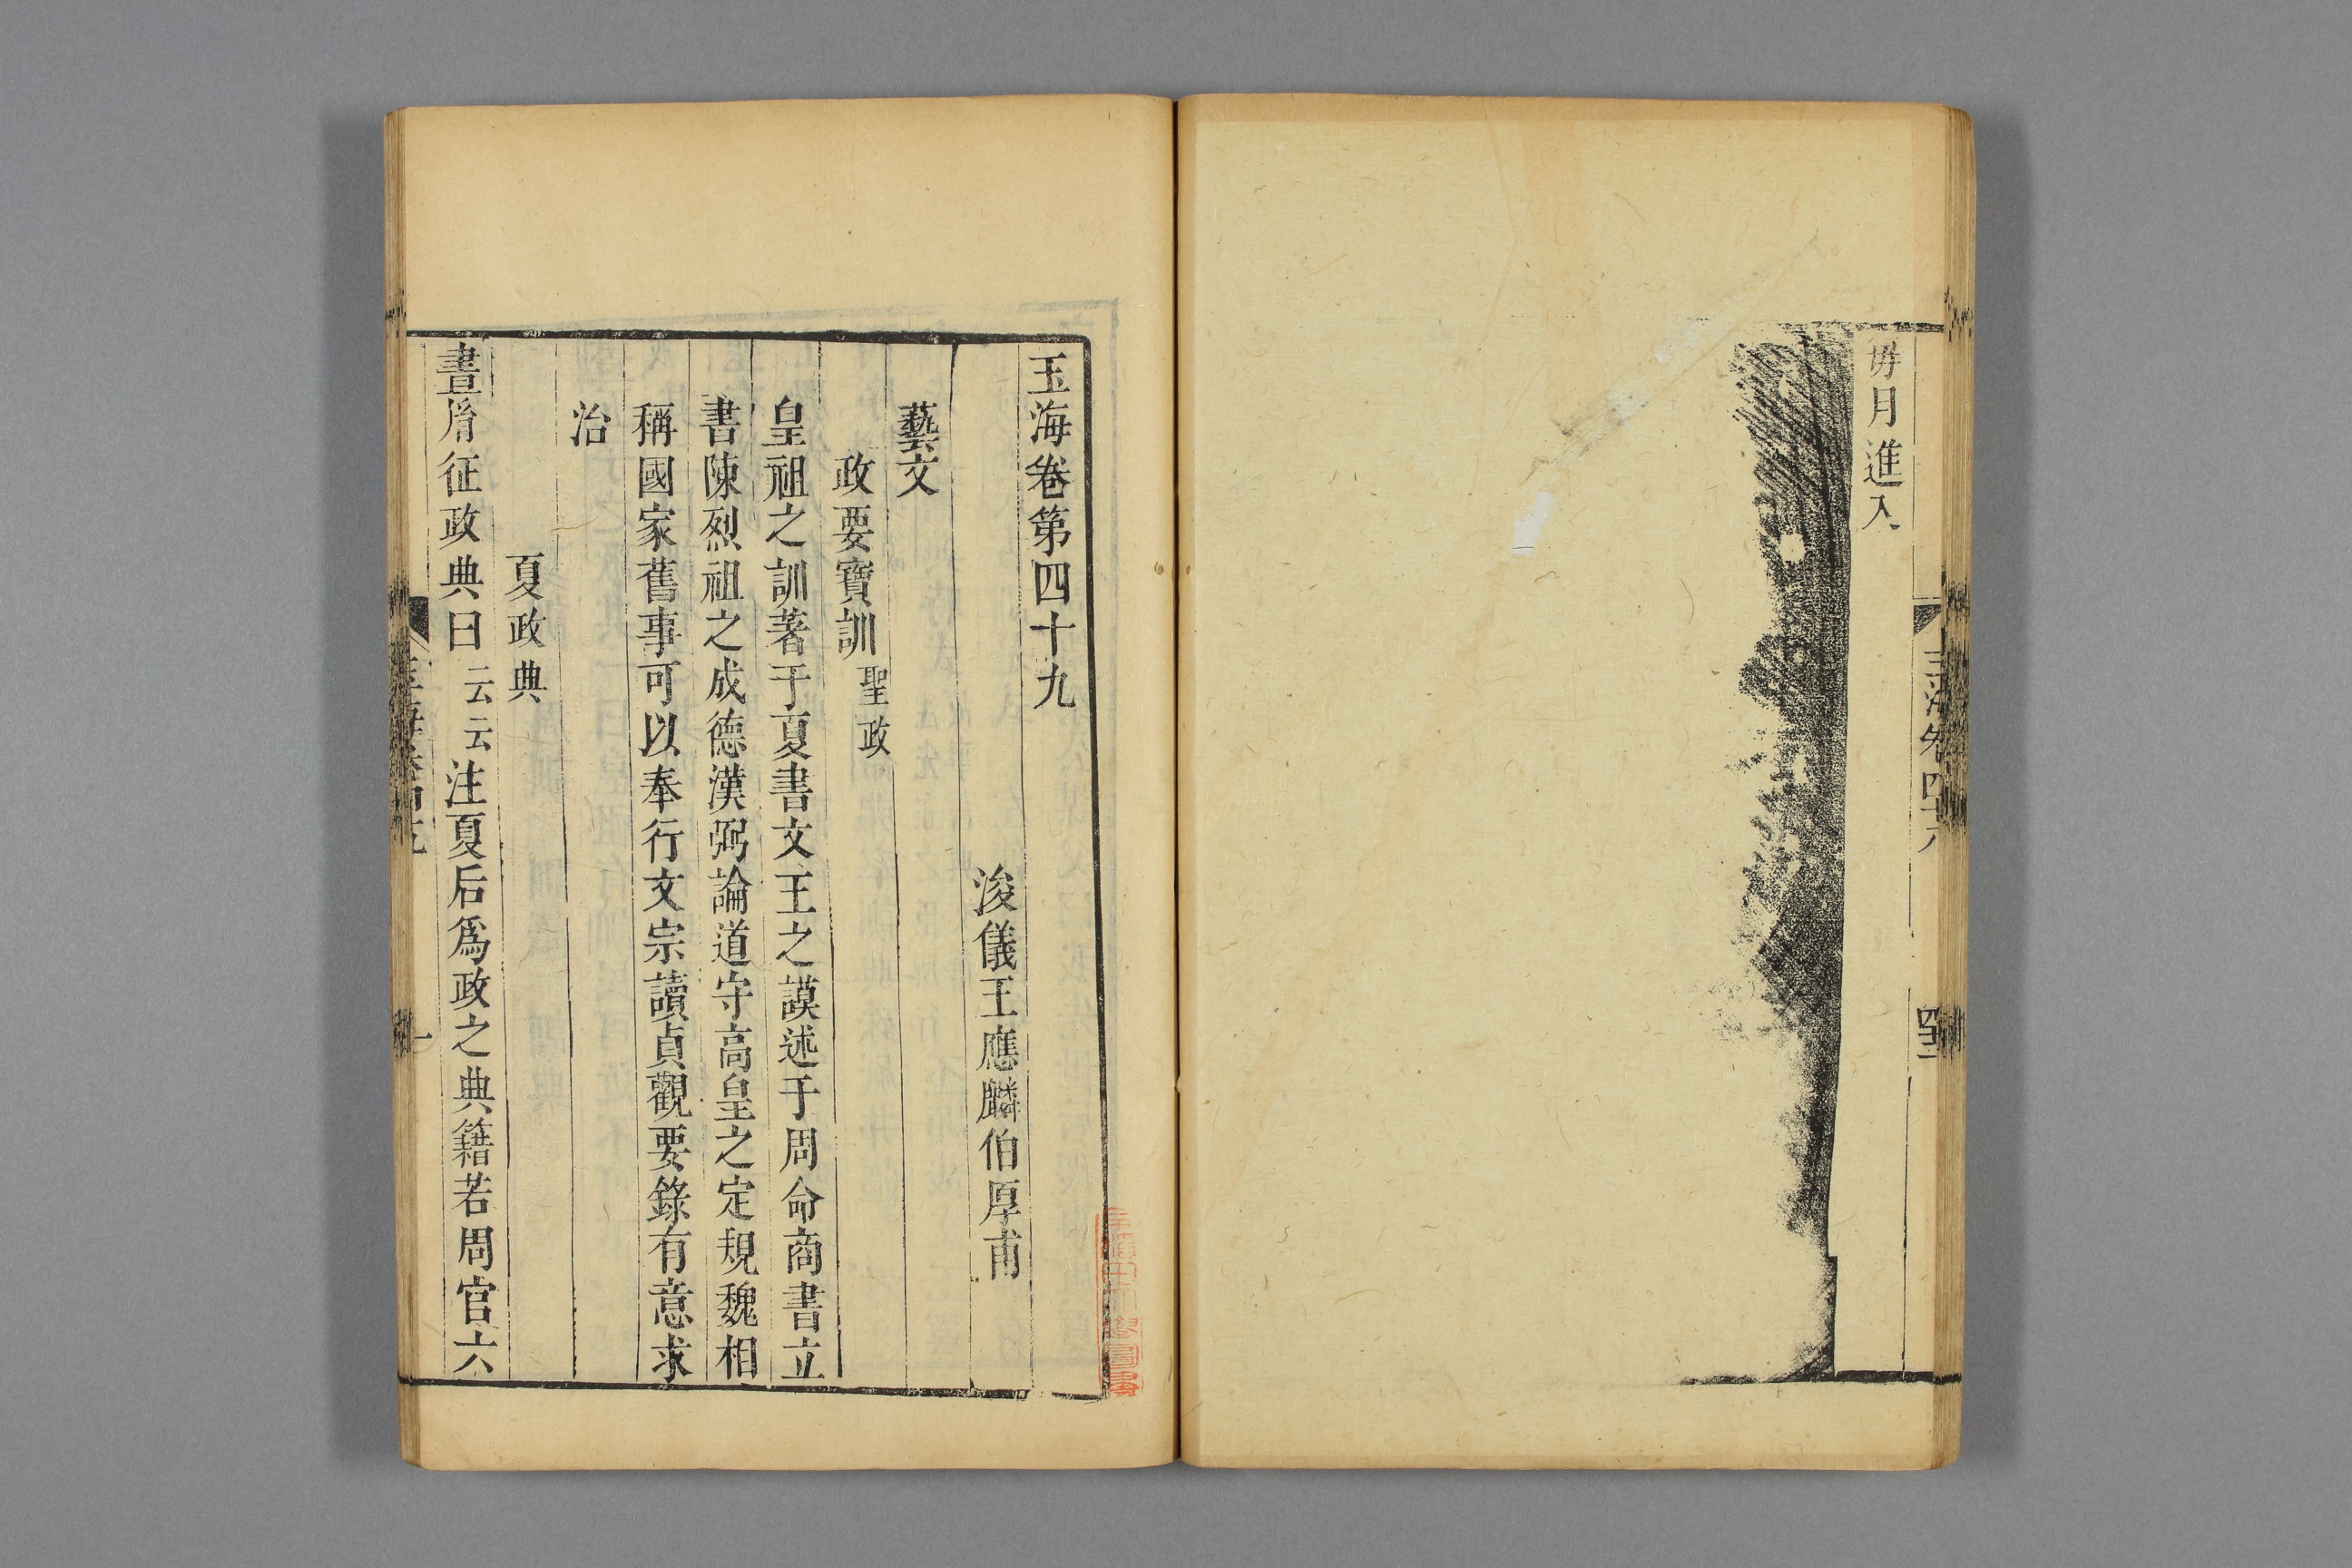 毎月進入
玉海卷四十八
玉海卷第四十九
浚儀王應麟伯厚甫
藝文
政要寶訓 聖政
皇祖之訓著于夏書文王之謨述于周命商書立
書陳烈祖之成德漢弼論道守高皇之定規魏相
稱國家舊事可以奉行文宗讀貞觀要錄有意求
治
夏政典
書胤征政典曰云云注夏后爲政之典籍若周官六
一